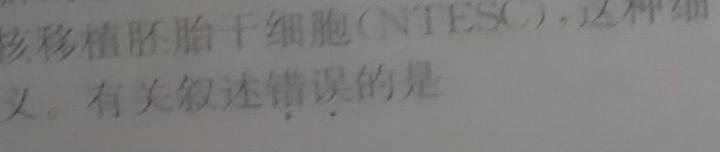 核移植胚胎干细胞(NTESC),这种细
义。有关叙述错误的是